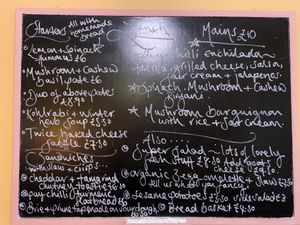 Starters All with homemade bread
Lemon + Spinach
hummus £6
Mushroom + Cashew
basil pate £6
Duo of above pates
£8.90
Kohlrabi + winter
herb soup £5.50
Twice baked cheese
souffle £7.50
Sandwiches
with slaw + crisps...
cheddar + tamarind
chutney toastie £6.10
flatbread
Lunch
Mains £10
chilli enchilada ~
grilled cheese, salsa,
sour cream + jalapenos
Spinach Mushroom + Cashew
Mushroom Bourguignon
with rice + sour cream
Also....
Super Salad ~ lots of lovely
fresh stuff £8.50 add goats
cheese £9.50
organic free omelette + slaw £7.50
tell us what you fancy
sesame potatoes £3.50 side salad £3
Bread basket £4.50